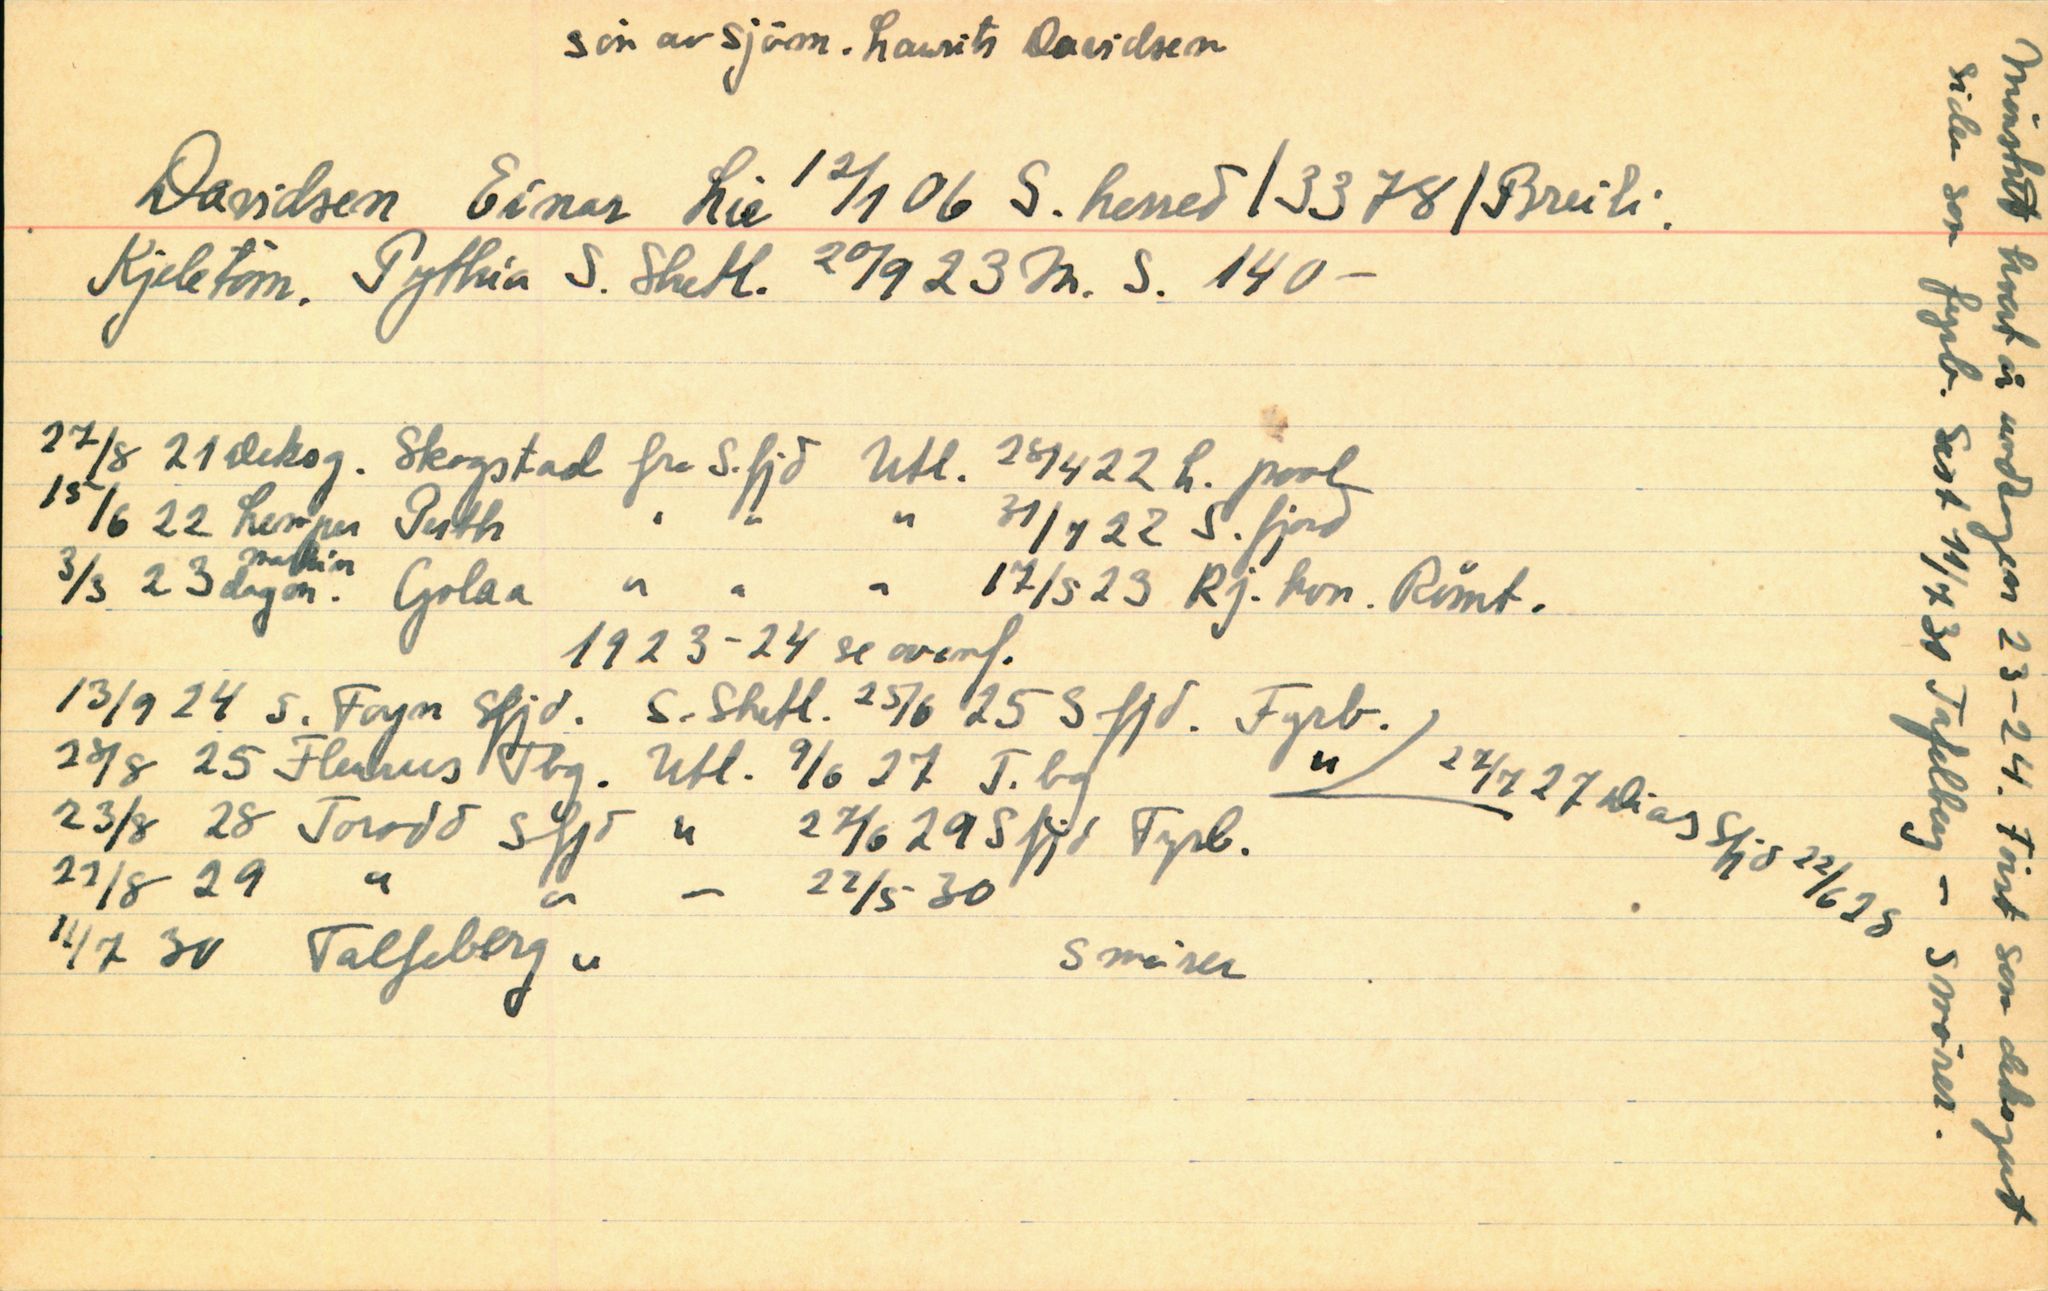 sön av sjöm. Laurits Davidsen
Davidsen Einar Lie 12/1 06 S. herred /3378/ Breili.
Kjeletöm. Pythia S. Shetl. 20/9 23 M. S. 140-
27/8 21 Deksg. Skogstad fra S.fjd Utl. 28/4 22 L. pool
15/6 22 Lemper Perth " " " 31/7 22 S. fjord
3/3 23 maskin dagm. Golaa " " " 17/5 23 Rj. kvn. Römt.
1923-24 se ovenf.
13/9 24 S. Foyn Sfjd. S. Shetl. 25/6 25 S fjd. Fyrb.
28/8 25 Fleurus Tbg. Utl. 9/6 27 T.bg "
27/7 27 Dias Sfjd 22/6 28
23/8 28 Torodd Sfjd " 27/6 29 S fjd Fyrb.
22/8 29 " " - 22/5 30
11/7 30 Talfelberg " smörer
Mönstret hvert år undtagen 23-24. Först som deksgut
siden som fyrb. Sist 11/7 30 Tafelberg - smörer.